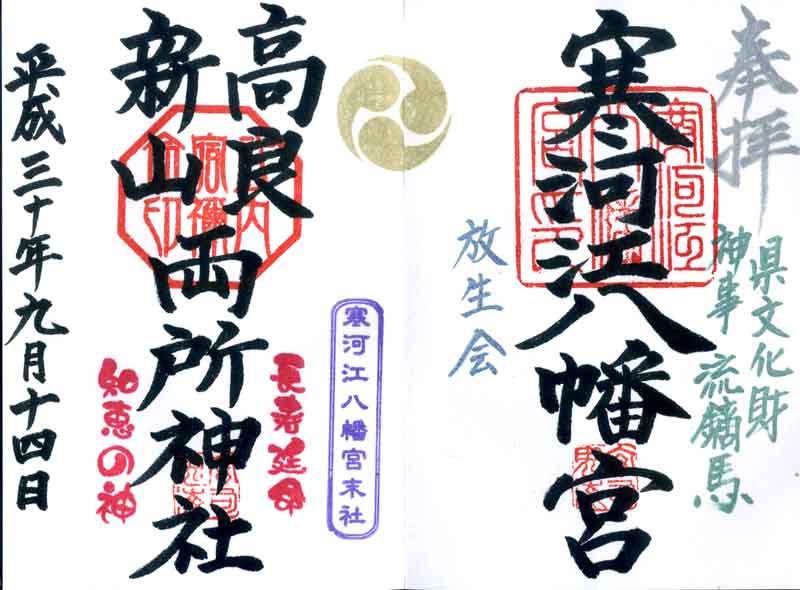 奉拝
県文化財
神事 流鏑馬
寒河江八幡宮
放生会
寒河江八幡宮末社
高良
新山
両所神社
長寿延命
知恵の神
平成三十年九月十四日